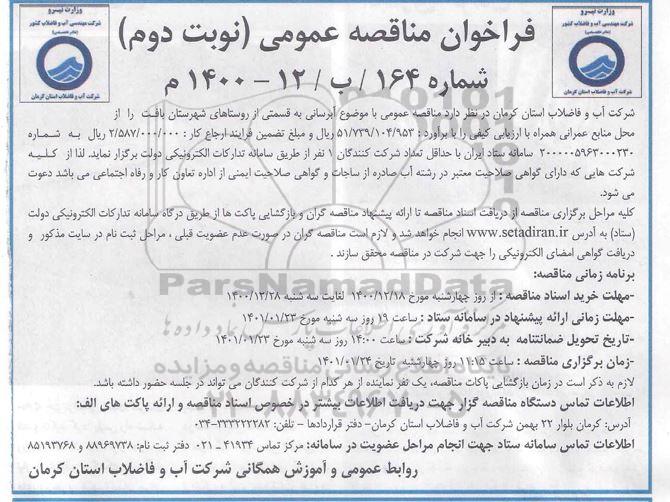 وزارت نیرو
شرکت مهندسی آب و فاضلاب کشور
(مادر تخصصی)
شرکت آب و فاضلاب استان کرمان
وزارت نیرو
شرکت مهندسی آب و فاضلاب کشور
(مادر تخصصی)
شرکت آب و فاضلاب استان کرمان
فراخوان مناقصه عمومی (نوبت دوم)
شماره ۱۶۴ / ب / ۱۲ – ۱۴۰۰ م
شرکت آب و فاضلاب استان کرمان در نظر دارد مناقصه عمومی با موضوع آبرسانی به قسمتی از روستاهای شهرستان بافت را از
محل منابع عمرانی همراه با ارزیابی کیفی را با برآورد : ۵۱/۷۳۹/۱۰۴/۹۵۳ ریال و مبلغ تضمین فرایند ارجاع کار : ۲/۵۸۷/۰۰۰/۰۰۰ ریال به شماره
۲۰۰۰۰۰۵۹۶۳۰۰۰۲۳۰ سامانه ستاد ایران با حداقل تعداد شرکت کنندگان ۱ نفر از طریق سامانه تدارکات الکترونیکی دولت برگزار نماید. لذا از کلیه
شرکت هایی که دارای گواهی صلاحیت معتبر در رشته آب صادره از ساجات و گواهی صلاحیت ایمنی از اداره تعاون کار و رفاه اجتماعی می باشد دعوت
می شود.
کلیه مراحل برگزاری مناقصه از دریافت اسناد مناقصه تا ارائه پیشنهاد مناقصه گران و بازگشایی پاکت ها از طریق درگاه سامانه تدارکات الکترونیکی دولت
(ستاد) به آدرس www.sctadiran.ir انجام خواهد شد و لازم است مناقصه گران در صورت عدم عضویت قبلی ، مراحل ثبت نام در سایت مذکور و
دریافت گواهی امضای الکترونیکی را جهت شرکت در مناقصه محقق سازند .
برنامه زمانی مناقصه:
-مهلت خرید اسناد مناقصه : از روز چهارشنبه مورخ ۱۴۰۰/۱۲/۱۸ لغایت سه شنبه ۱۴۰۰/۱۲/۲۸
-مهلت زمانی ارائه پیشنهاد در سامانه ستاد : ساعت ۱۹ روز سه شنبه مورخ ۱۴۰۱/۰۱/۲۳
-تاریخ تحویل ضمانتنامه به دبیر خانه شرکت : ساعت ۱۴:۰۰ روز سه شنبه مورخ ۱۴۰۱/۰۱/۲۳
-زمان برگزاری مناقصه : ساعت ۱۱:۱۵ روز چهارشنبه تاریخ ۱۴۰۱/۰۱/۲۴
لازم به ذکر است در زمان بازگشایی پاکات مناقصه، یک نفر نماینده از هر کدام از شرکت کنندگان می تواند در جلسه حضور داشته باشد.
اطلاعات تماس دستگاه مناقصه گزار جهت دریافت اطلاعات بیشتر در خصوص اسناد مناقصه و ارائه پاکت های الف:
آدرس: کرمان بلوار ۲۲ بهمن شرکت آب و فاضلاب استان کرمان– دفتر قراردادها – تلفن: ۳۳۳۲۲۲۸۲-۰۳۴
اطلاعات تماس سامانه ستاد جهت انجام مراحل عضویت در سامانه: مرکز تماس ۴۱۹۳۴ - ۰۲۱ دفتر ثبت نام: ۸۸۹۶۹۷۳۸ و ۸۵۱۹۳۷۶۸
روابط عمومی و آموزش همگانی شرکت آب و فاضلاب استان کرمان
ParsNamadData